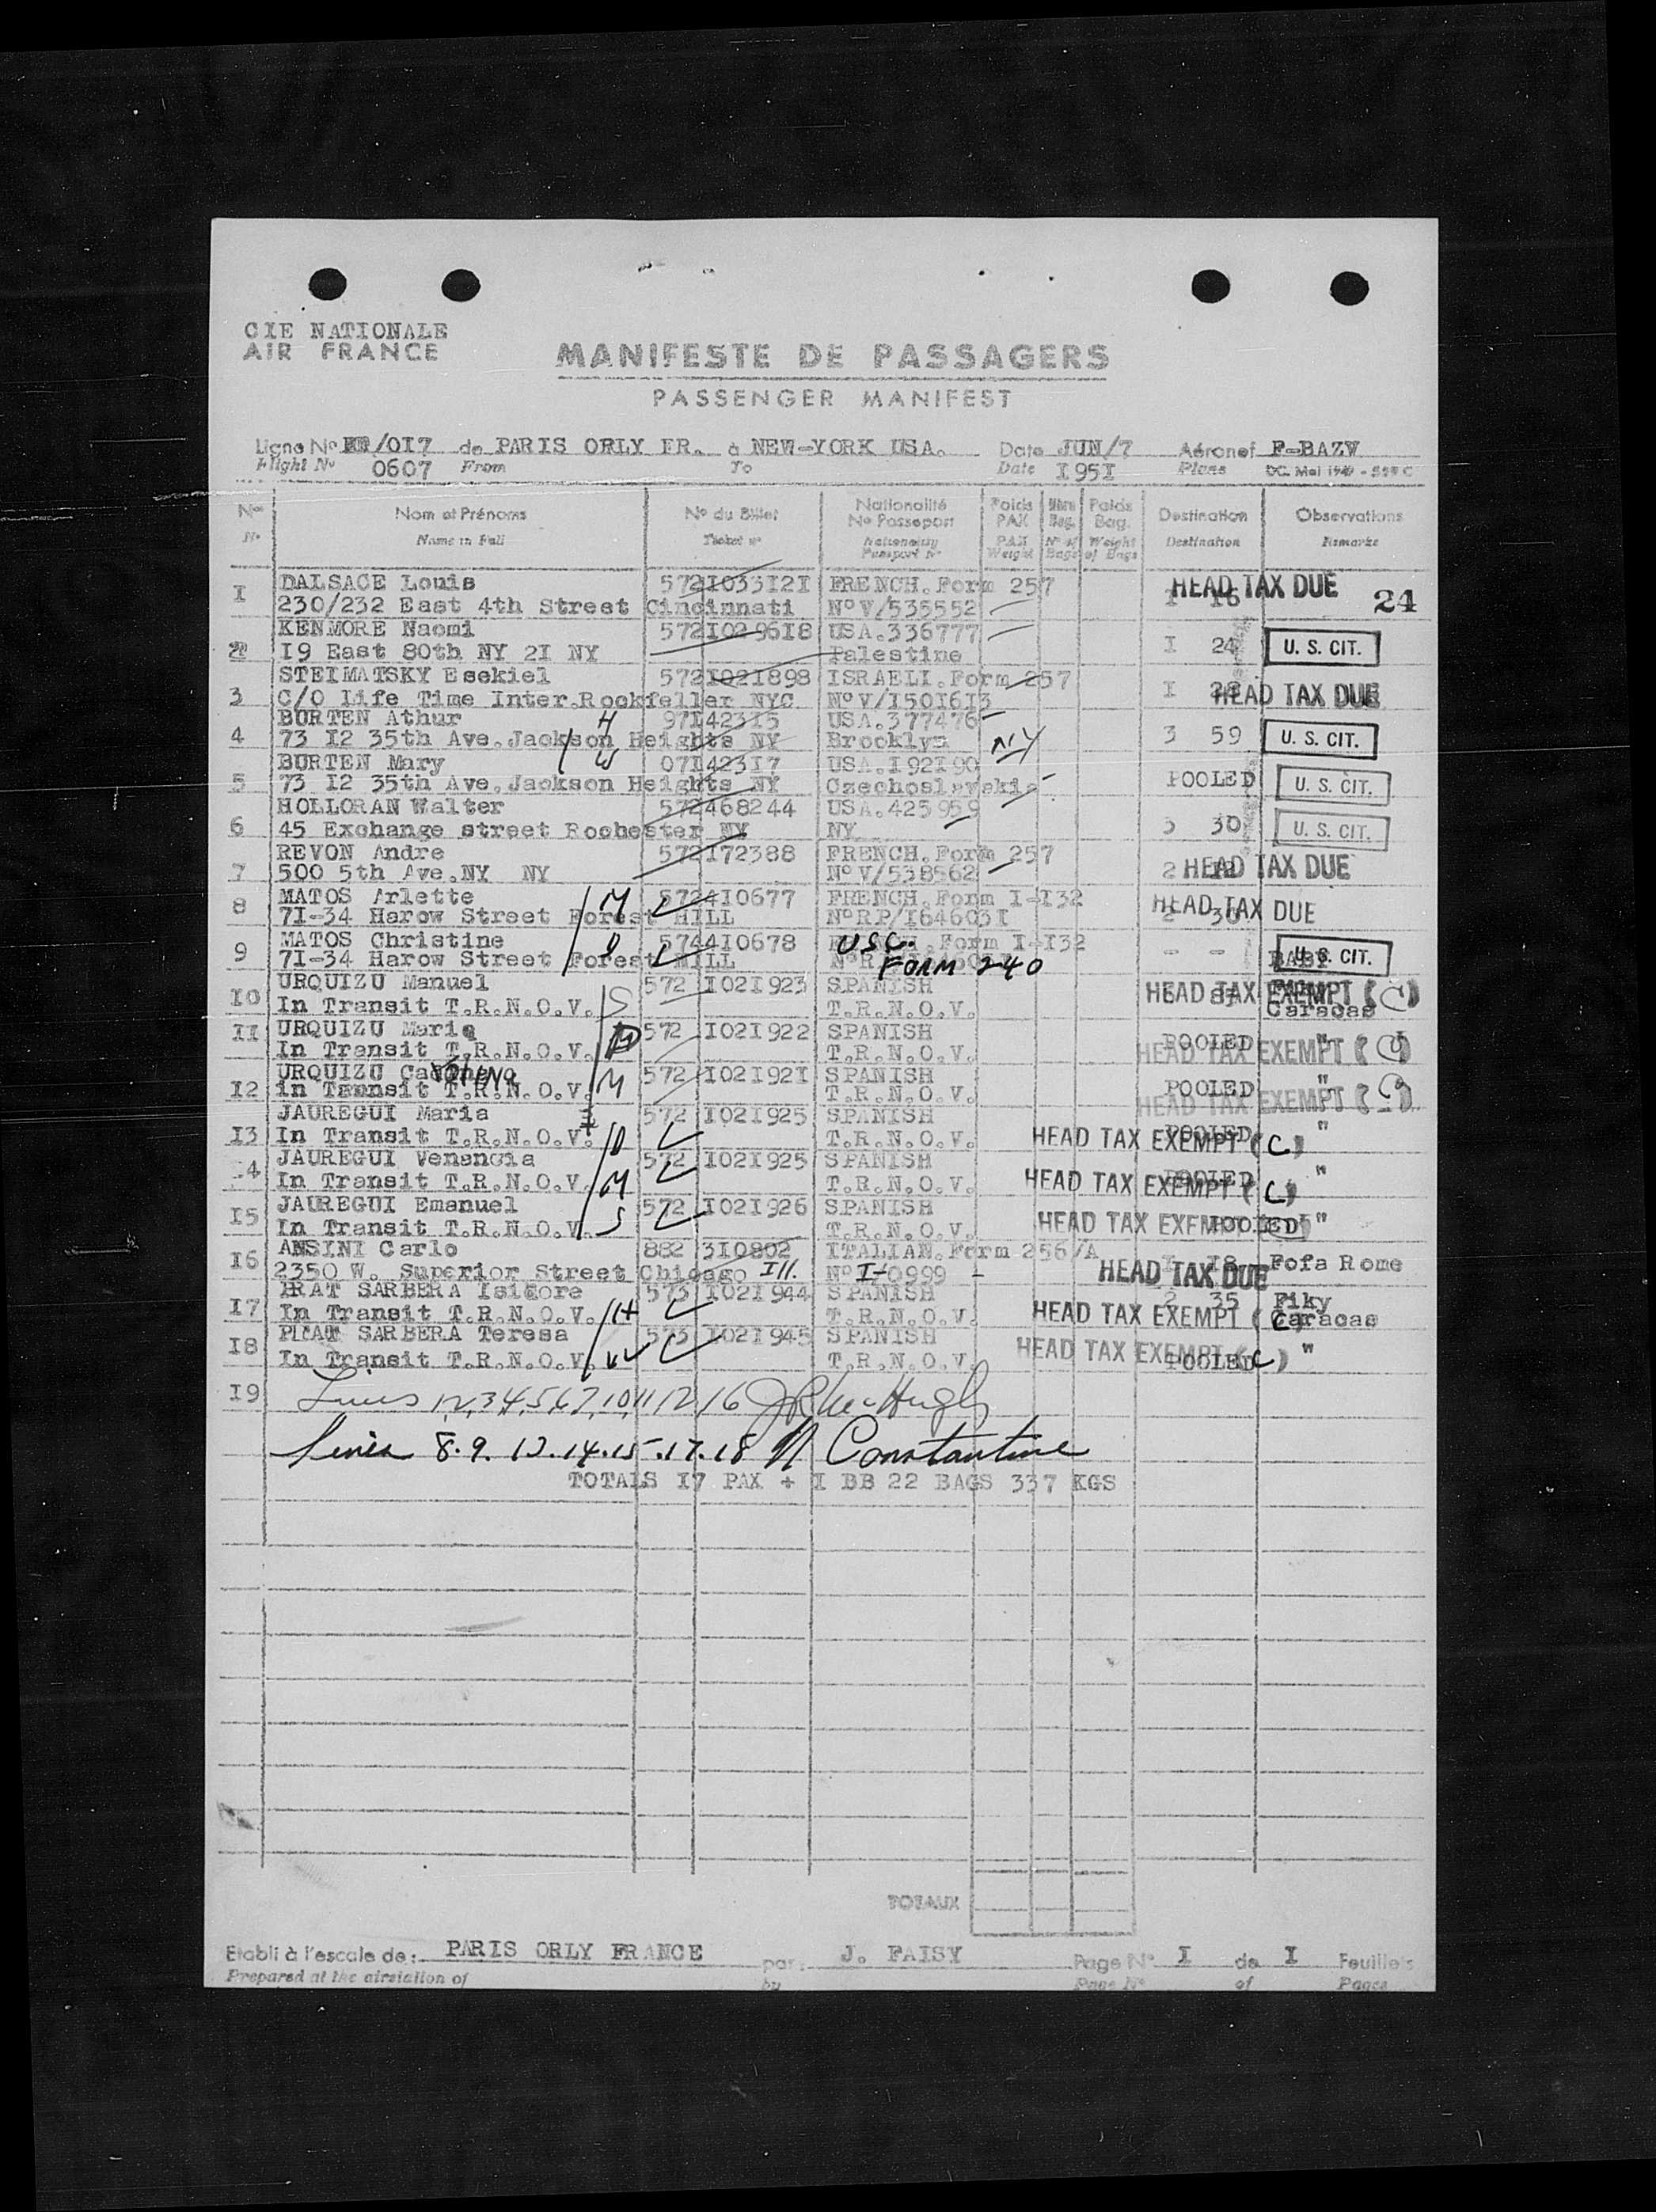 CIE NATIONALE
AIR FRANCE
MANIFESTE DE PASSAGERS
PASSENGER MANIFEST
Ligne No /017 de PARIS ORLY FR. à NEW-YORK USA. Date JUN/7 Aéronef F-BAZW
Flight No 0607 From To Date I95I Plane
No Nom et Prénoms No du Billet Nationalité No Passeport Poids PAX Nbre Bag. Poids Bag. Destination Observations
No Name in Full Ticket No Nationality Passport No PAX Weight No of Bags Weight of Bags Destination Remarks
I DALSACE Louis 572I033I2I FRENCH.Form 257 HEAD TAX DUE 24
230/232 East 4th Street Cincinnati No V/535552 I I6
2 KENMORE Naomi 572I029618 USA.336777
I9 East 80th NY 2I NY Palestine I 24 U. S. CIT.
3 STEIMATSKY Esekiel 572I02I898 ISRAELI.Form 257
C/O Life Time Inter.Rockfeller NYC. No V/I50I6I3 I HEAD TAX DUE
4 BURTEN Athur H 97I423I5 USA.377476
73 I2 35th Ave.Jackson Heights NY Brooklyn NY 3 59 U. S. CIT.
5 BURTEN Mary W 07I423I7 USA.I92I90
73 I2 35th Ave.Jackson Heights NY Czechoslovakia POOLED U. S. CIT.
6 HOLLORAN Walter 572468244 USA.425959
45 Exchange street Rochester NY NY 3 30 U. S. CIT.
7 REVON Andre 572I72388 FRENCH.Form 257
500 5th Ave.NY NY No V/538562 2 HEAD TAX DUE
8 MATOS Arlette M 5724I0677 FRENCH.Form I-I32
7I-34 Harow Street Forest HILL No RP/I64603I HEAD TAX DUE
9 MATOS Christine D 5744I0678 USC. Form I-I32
7I-34 Harow Street Forest HILL FORM 240 - - BABY U. S. CIT.
I0 URQUIZU Manuel S 572 I02I923 SPANISH
In Transit T.R.N.O.V. T.R.N.O.V. HEAD TAX EXEMPT (C) Caracas
II URQUIZU Maria D 572 I02I922 SPANISH
In Transit T.R.N.O.V. T.R.N.O.V. POOLED " HEAD TAX EXEMPT (C)
I2 URQUIZU M 572 I02I92I SPANISH
in Tannsit T.R.N.O.V. T.R.N.O.V. POOLED " HEAD TAX EXEMPT (C)
I3 JAUREGUI Maria D 572 I02I925 SPANISH
In Transit T.R.N.O.V. T.R.N.O.V. HEAD TAX EXEMPT (C) POOLED "
I4 JAUREGUI Venencia M 572 I02I925 SPANISH
In Transit T.R.N.O.V. T.R.N.O.V. HEAD TAX EXEMPT (C) POOLED "
I5 JAUREGUI Emanuel S 572 I02I926 SPANISH
In Transit T.R.N.O.V. T.R.N.O.V. HEAD TAX EXEMPT POOLED "
I6 ANSINI Carlo 882 3I0802 ITALIAN.Form 256/A
2350 W. Superior Street Chicago Ill. No I-0999 - HEAD TAX DUE I I8 Fofa Rome
I7 PRAT SARBERA Isidore H 573 I02I944 SPANISH 2 35 Fiky
In Transit T.R.N.O.V. T.R.N.O.V. HEAD TAX EXEMPT (C) Caracas
I8 SARBERA Teresa W 573 I02I945 SPANISH
In Transit T.R.N.O.V. T.R.N.O.V. HEAD TAX EXEMPT (C) POOLED "
I9 Lines 1,2,3,4,5,6,7,10,11,12,16 McHugh
Lines 8.9.13.14.15.17.18 N Constantine
TOTALS I7 PAX + I BB 22 BAGS 337 KGS
TOTAUX
Etabli à l'escale de: PARIS ORLY FRANCE par: J. FAISY Page No I de I Feuillets
Prepared at the airstation of by Page No of Pages